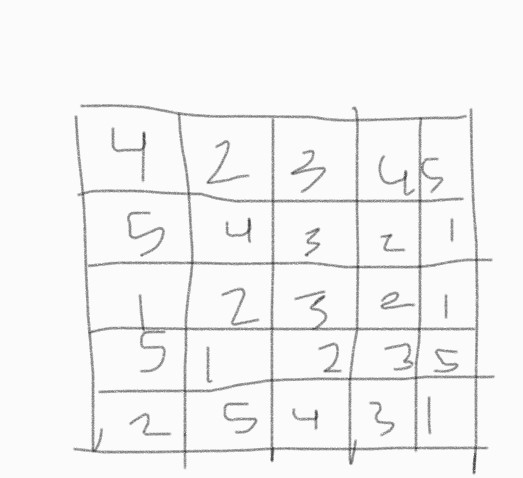 4 2 3 4 5
5 4 3 2 1
1 2 3 2 1
5 1 2 3 5
2 5 4 3 1